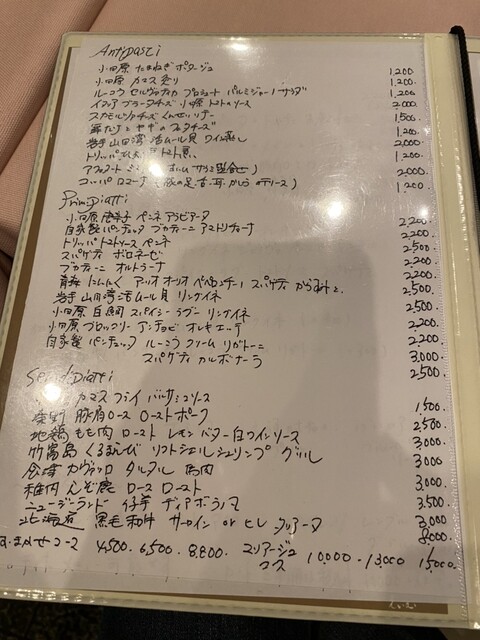 Antipasti
小田原 たまねぎ ポタージュ 1,200
小田原 カマス 炙り 1,200
ルーコラ セルヴァチカ プロシュート パルミジャーノ サラダ 1,200
イタリア ブラータチーズ 小田原 トマトソース 2,000
スカモルツァチーズ くんせい 1,500
ヤギのフェタチーズ 1,200
岩手 山田湾 活ムール貝 ワイン蒸し 2,000
トリッパ トマト煮 1,200
サラミ盛合せ) 2,000
コッパ ロマーナ 豚の足、舌、耳、かしらのテリーヌ) 1,200
Primi Piatti
小田原 唐辛子 ペンネ アラビアータ 2,200
自家製 パンチェッタ ブカティーニ アマトリチャーナ 2,200
トリッパ トマトソース ペンネ 2,500
スパゲティ ボロネーゼ 2,200
ブカティーニ オルトラーナ 2,200
青森 にんにく アーリオ オーリオ ペペロンチーノ スパゲティ からすみと 2,500
岩手 山田湾 活ムール貝 リングイネ 2,500
小田原 目鯛 スパイシー ラグー リングイネ 2,200
小田原 ブロッコリー アンチョビ オレキエッテ 2,200
自家製 パンチェッタ ルーコラ クリーム リガトーニ 3,000
スパゲティ カルボナーラ 2,500
Secondi Piatti
カマス フライ バルサミコソース 1500
豚肩ロース ローストポーク 2,500
地鶏 もも肉 ロースト レモン バター 白ワインソース 3,000
竹富島 くるまえび ソフトシェルシュリンプ グリル 3,000
会津 カヴァッロ タルタル 馬肉 3,000
稚内 えぞ鹿 ロース ロースト 3,500
ニュージーランド 仔羊 ディアボラ 3,000
北海道 黒毛和牛 サーロイン or ヒレ タリアータ 8,000
おまかせコース 4,500. 6,500. 8,800. マリアージュ コース 10,000 - 13,000 15,000